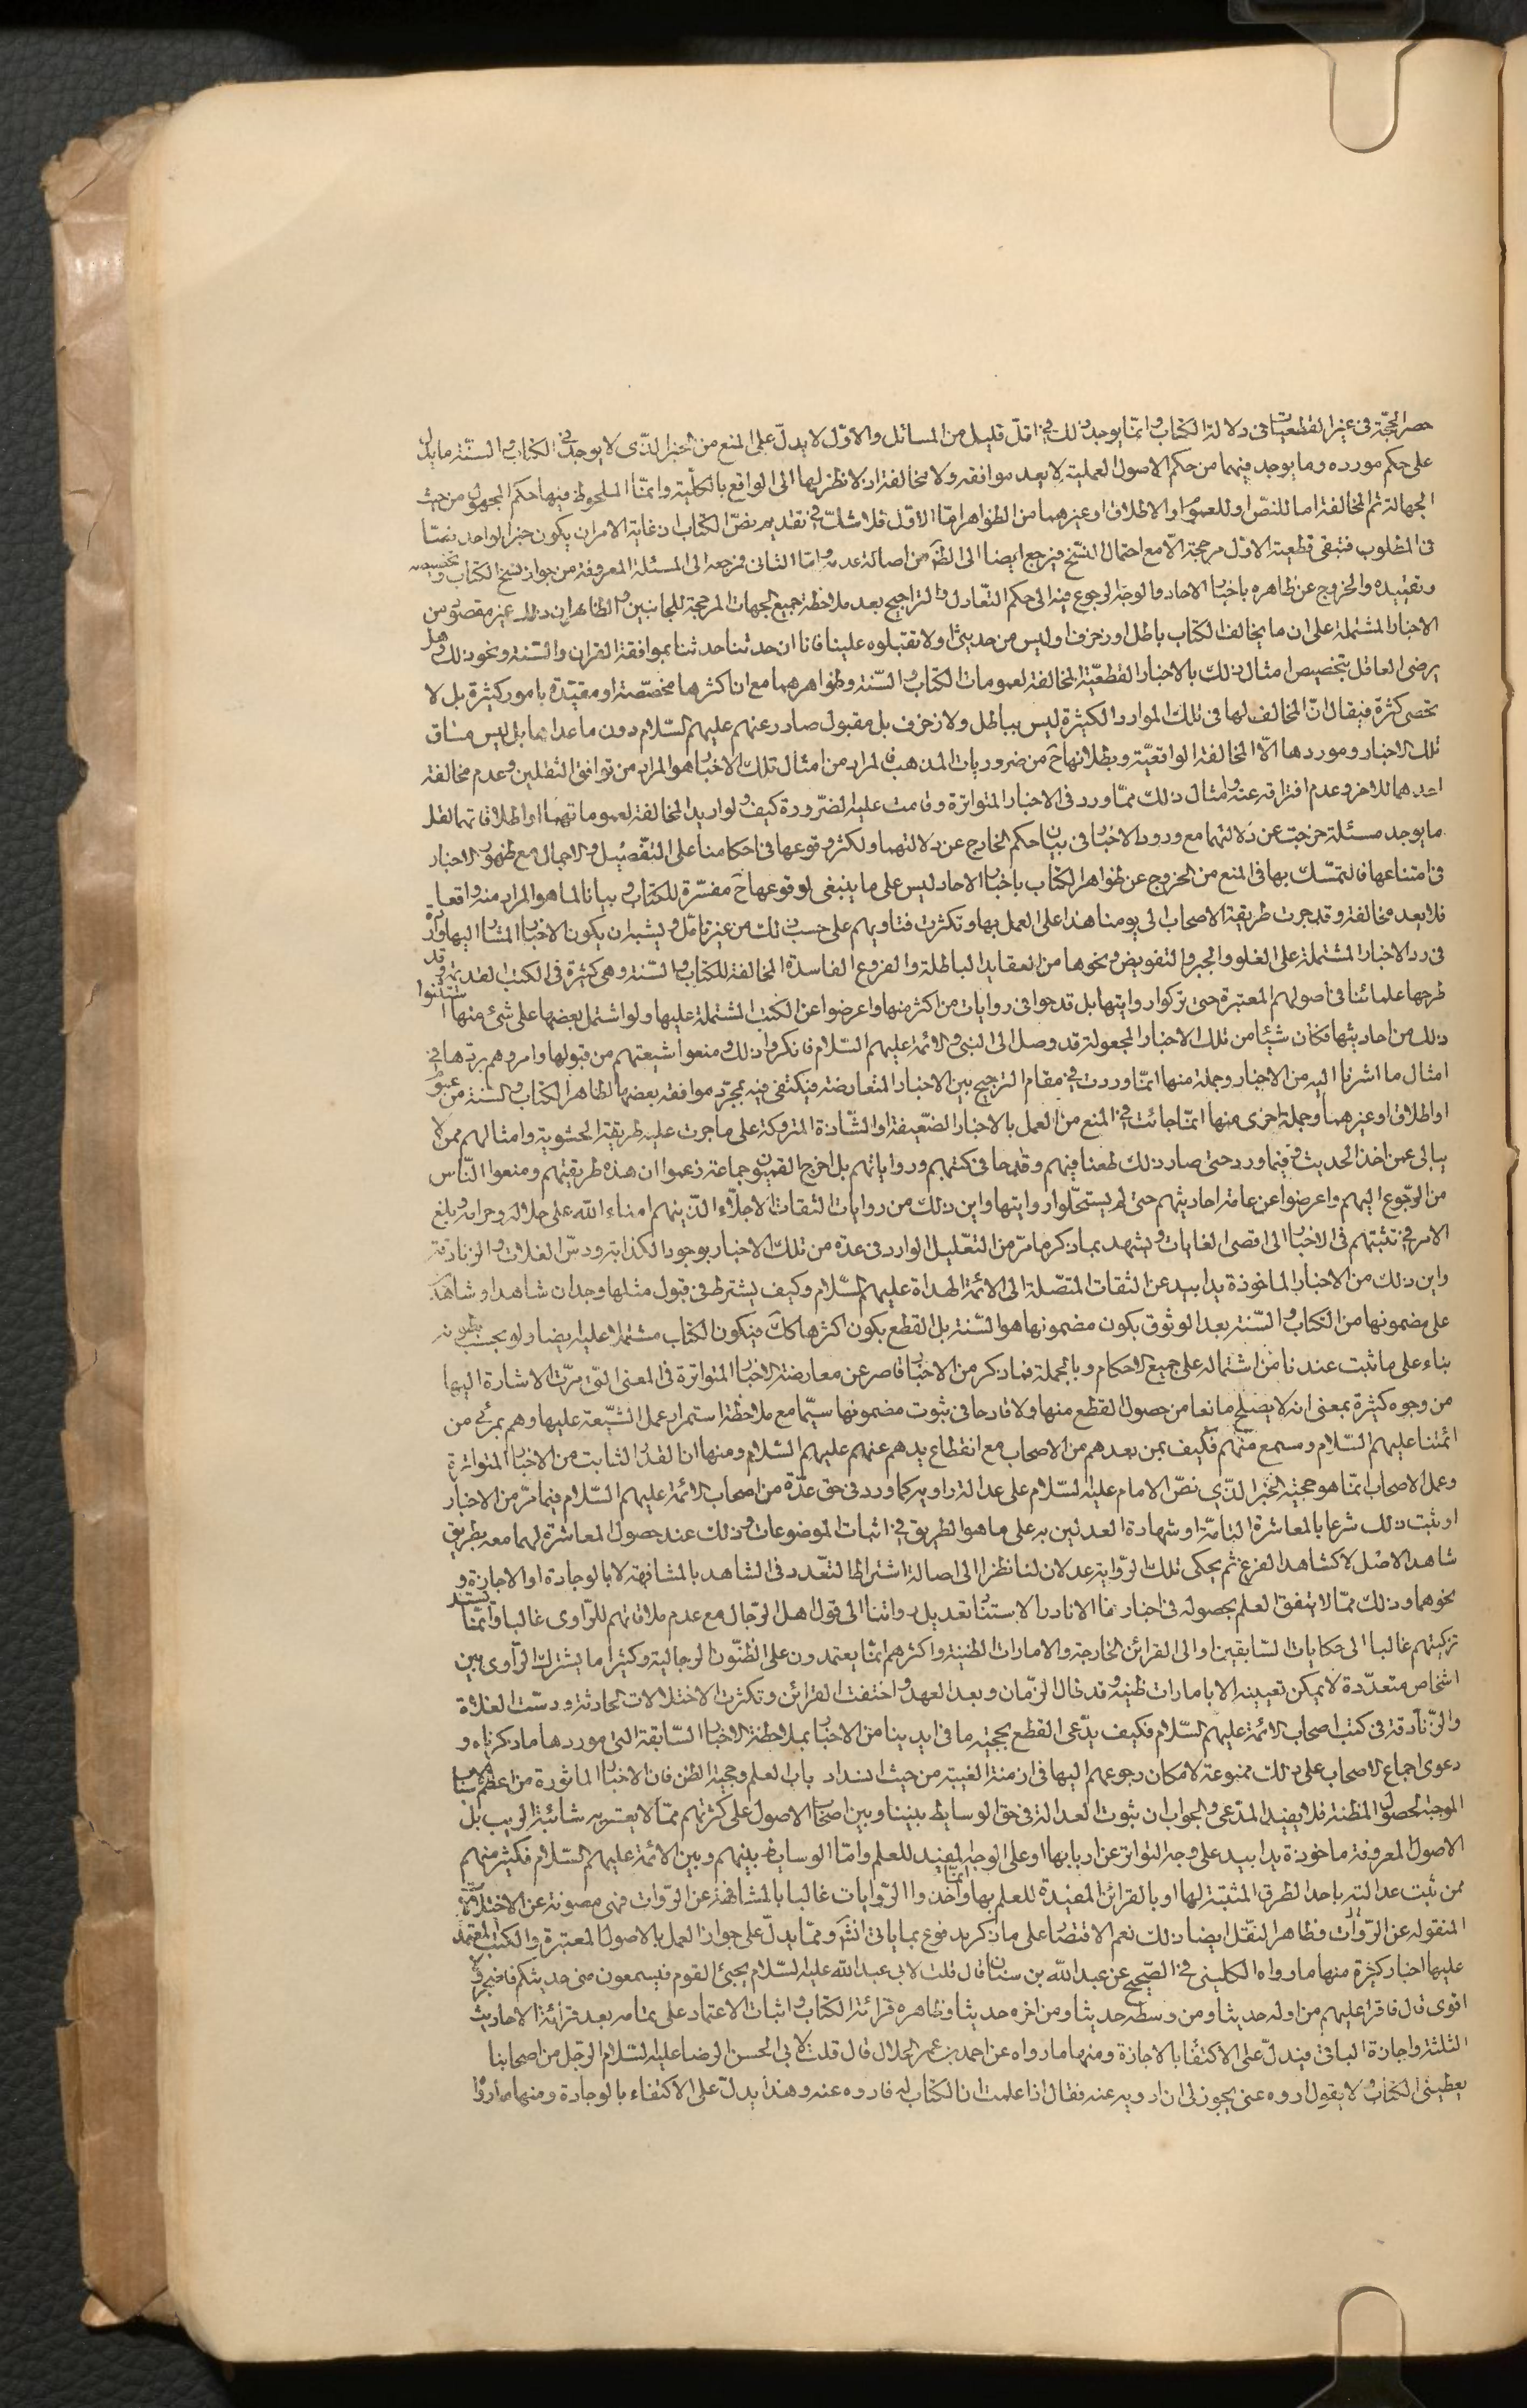 حصر الحجّة فى غير القطعيات فى دلالة الكتاب وانمّا يوجد ذلك فى اقلّ قليل من المسائل والاوّل لا يدلّ على المنع من الخبر الذّى لا يوجد فى الكتاب والسنّة ما يدل
على حكم مورده وما يوجد فيهما من حكم الاصول العملية لا يعد موافقه ولا مخالفة اذ لا نظر لها الى الواقع بالكلّية وانمّا الملحوظ فيها حكم المجهول من حيث
الجهالة ثم المخالفة اما للنصّ او للعموم او الاطلاق او غيرهما من الظواهر امّا الاوّل فلا شكّ فى تقديم نصّ الكتاب اذ غاية الامر ان يكون خبر الواحد نصّا
فى المطلوب فتبقى قطعية الاوّل مرجحة الّا مع احتمال النسّخ فيرجع ايضا الى الظنّ من اصالة عدمه وامّا الثانى فمرجعه الى المسئلة المعروفة من جواز نسخ الكتاب وتخصيصه
وتقييده والخروج عن ظاهره باخبار الاحاد والوجه الرجوع فيه الى حكم التّعادل والتراجيح بعد ملاحظة جميع الجهات المرجحة للجانبين والظاهر ان ذلك غير مقصود من
الاخبار المشتملة على ان ما يخالف الكتاب باطل او زخرف او ليس من حديثنا ولا تقبلوه علينا فانا ان حدثنا حدثنا بموافقة القران والسّنة ونحو ذلك وهل
يرضى العاقل بتخصيص امثال ذلك بالاخبار القطعيّة المخالفة لعمومات الكتاب والسّنة وظواهرهما مع ان اكثرها مخصّصة او مقيّدة بامور كثيرة بل لا
تحصى كثرة فيقال انّ المخالف لها فى تلك الموارد الكثيرة ليس بباطل ولا زخرف بل مقبول صادر عنهم عليهم السّلام دون ما عداها بل ليس مساق
تلك الاخبار وموردها الّا المخالفة الواقعيّة وبطلانها ح من ضروريات المذهب فالمراد من امثال تلك الاخبار هو المراد من توافق الثقلين وعدم مخالفة
احدهما للاخر وعدم افتراقه عنه وامثال ذلك ممّا ورد فى الاخبار المتواترة وقامت عليه الضرورة كيف ولو اريد المخالفة لعموماتهما او اطلاقاتهما لقل
ما يوجد مسئلة خرجت عن دلالتهما مع ورود الاخبار فى بيان حكم الخارج عن دلالتهما ولكثر وقوعها فى احكامنا على التفصيل والاجمال مع ظهور الاخبار
فى امتناعها فالتمسّك بها فى المنع من الخروج عن ظواهر الكتاب باخبار الاحاد ليس على ما ينبغى لوقوعها ح مفسّرة للكتاب وبيانا لما هو المراد منه واقعا
فلا يعد مخالفة وقد جرت طريقة الاصحاب الى يومنا هذا على العمل بها وتكثرت فتاويهم على حسب ذلك من غير تامّل ويشبه ان يكون الاخبار المشار اليها واردة
فى رد الاخبار المشتملة على الغلو والجبر والتفويض ونحوها من العقايد الباطلة والفروع الفاسدة المخالفة للكتاب والسّنة وهى كثيرة فى الكتب القديمة وقد
طرحها علمائنا فى اصولهم المعتبرة حتى تركوا روايتها بل قدحوا فى روايات من اكثر منها واعرضوا عن الكتب المشتملة عليها ولو اشتمل بعضها على شئ منها استثنوا
ذلك من احاديثها فكان شيئا من تلك الاخبار المجعولة قد وصل الى النبى والائمة عليهم السّلام فانكروا ذلك ومنعوا شيعتهم من قبولها وامروهم بردّها فى
امثال ما اشرنا اليه من الاخبار وجملة منها انمّا وردت فى مقام الترجيح بين الاخبار المتعارضة فيكتفى فيه بمجرّد موافقة بعضها لظاهر الكتاب والسّنة من عموم
او اطلاق او غيرهما وجملة اخرى منها انمّا جائت فى المنع من العمل بالاخبار الضّعيفة او الشّاذة المتروكة على ما جرت عليه طريقة الحشوية وامثالهم ممن لا
يبالى عمن اخذ الحديث وفيما ورد حتى صار ذلك طعنا فيهم وقدحا فى كتبهم ورواياتهم بل اخرج القميّون جماعة زعموا ان هذه طريقتهم ومنعوا النّاس
من الرّجوع اليهم واعرضوا عن عامة احاديثهم حتى لم يستحّلوا روايتها واين ذلك من روايات الثقات الاجلّاء الذّينهم امناء الله على حلاله وحرامه وبلغ
الامر فى تثبتهم فى الاخبار الى اقصى الغايات ويشهد بما ذكر ما مرّ من التعّليل الوارد فى عدّه من تلك الاخبار بوجود الكذابة ودسّ الغلات والزنادقة
واين ذلك من الاخبار الماخوذة يدا بيد عن الثقات المتصّلة الى الائمة الهداة عليهم السّلام وكيف يشترط فى قبول مثلها وجدان شاهد او شاهدين
على مضمونها من الكتاب والسّنة بعد الوثوق بكون مضمونها هو السّنة بل القطع بكون اكثرها كك فيكون الكتاب مشتملا عليه ايضا ولو بحسب بطونه
بناء على ما ثبت عندنا من اشتماله على جميع الاحكام وبالجملة فما ذكر من الاخبار قاصر عن معارضة الاخبار المتواترة فى المعنى التى مرّت الاشارة اليها
من وجوه كثيرة بمعنى انه لا يصلح مانعا من حصول القطع منها ولا قادحا فى ثبوت مضمونها سيّما مع ملاحظة استمرار عمل الشّيعة عليها وهم بمرئى من
ائمتنا عليهم السّلام ومسمع منهم فكيف بمن بعدهم من الاصحاب مع انقطاع يدهم عنهم عليهم السّلام ومنها ان القدر الثابت من الاخبار المتواترة
وعمل الاصحاب انمّا هو حجية الخبر الذّى نصّ الامام عليه السّلام على عدالة راويه كما ورد فى حق عدّة من اصحاب الائمة عليهم السّلام فيما مرّ من الاخبار
او ثبت ذلك شرعا بالمعاشرة التامّة او شهادة العدلين به على ما هو الطريق فى اثبات الموضوعات وذلك عند حصول المعاشرة لهما معه بطريق
شاهد الاصل لا كشاهد الفرع ثم يحكى تلك الرّواية عدلان لنا نظرا الى اصالة اشتراط التعّدد فى الشاهد بالمشافهة لا بالوجادة او الاجازة و
نحوهما وذلك ممّا لا يتفق العلم بحصوله فى اخبارنا الا نادرا لاستناد تعديل رواتنا الى قول اهل الرّجال مع عدم ملاقاتهم للرّاوى غالبا وانمّا يستند
تزكيتهم غالبا الى حكايات السّابقين او الى القرائن الخارجة والامارات الظنية واكثرهم انمّا يعتمدون على الظنّون الرجالية وكثيرا ما يشترك الرّاوى بين
اشخاص متعدّدة لا يمكن تعيينه الا بامارات ظنية وقد طال الزّمان وبعد العهد واختفت القرائن وتكثرت الاختلالات الحادثة ودسّت الغلاة
والزّنادقة فى كتب اصحاب الائمة عليهم السّلام فكيف يدّعى القطع بحجية ما فى ايدينا من الاخبار بملاحظة الاخبار السّابقة التى موردها ما ذكرناه و
دعوى اجماع الاصحاب على ذلك ممنوعة لامكان رجوعهم اليها فى ازمنة الغيبة من حيث انسداد باب العلم وحجية الظن فان الاخبار الماثورة من اعظم الاسباب
الموجبة لحصول المظنة فلا يفيد المدّعى والجواب ان ثبوت العدالة فى حق الوسايط بيننا وبين اصحاب الاصول على كثرتهم ممّا لا يعتريه شائبة الريب بل
الاصول المعروفة ماخوذة يدا بيد على وجه التواتر عن اربابها او على الوجه المفيد للعلم وامّا الوسايط بينهم وبين الائمة عليهم السّلام فكثير منهم
ممن ثبت عدالته باحد الطرق المثبتة لها او بالقرائن المفيدة للعلم بها وانمّا اخذوا الرّوايات غالبا بالمشافهة عن الرّوات فهى مصونة عن الاختلافات
المنقوله عن الرّوات وظاهر النقل ايضا ذلك نعم الاقتصار على ما ذكر مدفوع بما ياتى انش وممّا يدلّ على جواز العمل بالاصول المعتبرة والكتب المعتمد
عليها اخبار كثيرة منها ما رواه الكلينى فى الصّحيح عن عبد الله بن سنان قال قلت لابى عبد الله عليه السّلام يجيئ القوم فيسمعون منى حديثكم فاضجر ولا
اقوى قال فاقرا عليهم من اوله حديثا ومن وسطه حديثا ومن اخره حديثا وظاهره قرائة الكتاب واثبات الاعتماد على تمامه بعد قرائة الاحاديث
الثلثة واجازة الباقى فيدلّ على الاكتفاء بالاجازة ومنها ما رواه عن احمد بن عمر الحلال قال قلت لابى الحسن الرضا عليه السّلام الرّجل من اصحابنا
يعطينى الكتاب ولا يقول اروه عنى يجوز لى ان ارويه عنه فقال اذا علمت ان الكتاب له فاروه عنه وهذا يدلّ على الاكتفاء بالوجادة ومنها ما رواه